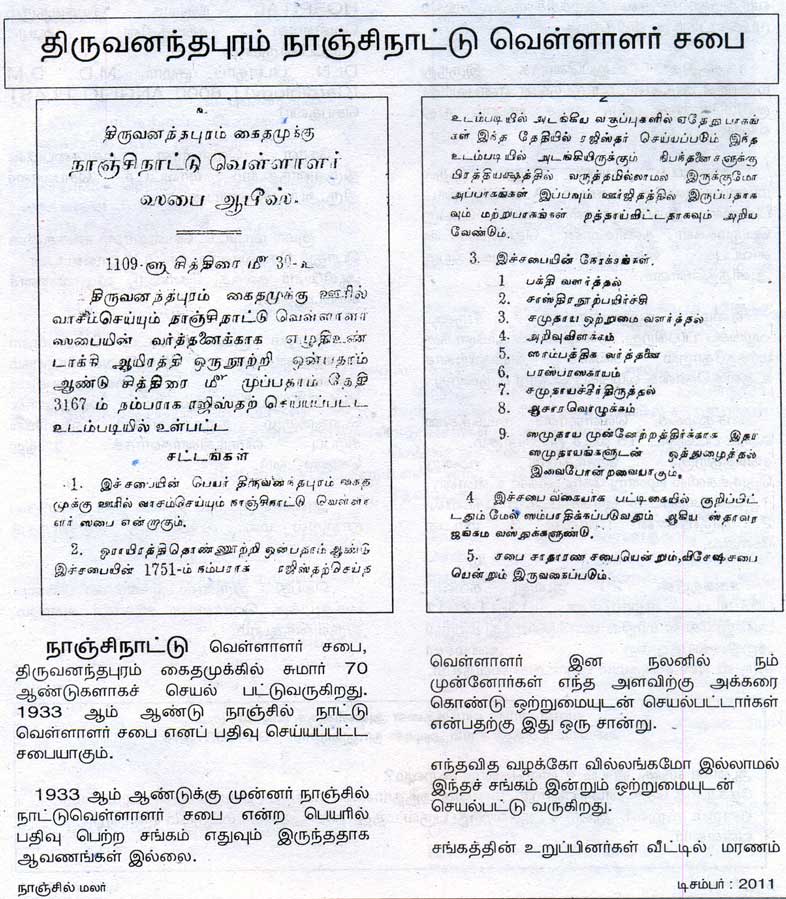 திருவனந்தபுரம் நாஞ்சிநாட்டு வெள்ளாளர் சபை
உ
திருவனந்தபுரம் கைதமுக்கு
நாஞ்சிநாட்டு வெள்ளாளர்
ஸபை ஆபீஸ்.
1109-ளு சித்திரை மீ 30-உ
திருவனந்தபுரம் கைதமுக்கு ஊரில்
வாசம்செய்யும் நாஞ்சிநாட்டு வெள்ளாளர்
ஸபையின் வர்த்தனைக்காக எழுதிஉண்
டாக்கி ஆயிரத்தி ஒருநூற்றி ஒன்பதாம்
ஆண்டு சித்திரை மீ முப்பதாம் தேதி
3167 ம் நம்பராக ரஜிஸ்தற் செய்யப்பட்ட
உடம்படியில் உள்பட்ட
சட்டங்கள்
1. இச்சபையின் பெயர் திருவனந்தபுரம் கைத
முக்கு ஊரில் வாசம்செய்யும் நாஞ்சிநாட்டு வெள்ளா
ளர் ஸபை என்றாகும்.
2. ஓராயிரத்திதொண்ணூற்றி ஒன்பதாம் ஆண்டு
இச்சபையின் 1751-ம் நம்பராக ரஜிஸ்தற்செய்த
2
உடம்படியில் அடங்கிய வகுப்புகளில் ஏதேனு பாகங்
கள் இந்த தேதியில் ரஜிஸ்தர் செய்யப்படும் இந்த
உடம்படியில் அடங்கியிருக்கும் நிபந்தனைகளுக்கு
பிரத்தியக்ஷத்தில் வருத்தமில்லாமல் இருக்குமோ
அப்பாகங்கள் இப்பவும் ஊர்ஜிதத்தில் இருப்பதாக
வும் மற்றுபாகங்கள் றத்தாய்விட்டதாகவும் அறிய
வேண்டும்.
3. இச்சபையின் நோக்கங்கள்.
1 பக்தி வளர்த்தல்
2. சாஸ்திர நூற்பயிற்சி
3. சமுதாய ஒற்றுமை வளர்த்தல்
4. அறிவுவிளக்கம்
5. ஸாம்பத்திக வர்த்தனை
6, பரஸ்பரஸகாயம்
7. சமுதாயச்சீர்திருத்தல்
8. ஆசாரவொழுக்கம்
9. ஸமுதாய முன்னேற்றத்திற்காக இதர
ஸமுதாயங்களுடன் ஒத்துழைத்தல்
இவைபோன்றவையாகும்.
4 இச்சபை வகையாக பட்டிகையில் குறிப்பிட்
டதும்மேல் ஸம்பாதிக்கப்படுவதும் ஆகிய ஸ்தாவர
ஜங்கம வஸ்துக்களுண்டு.
5. சபை சாதாரண சபையென்றும்,விசேஷசபை
யென்றும் இருவகைப்படும்.
நாஞ்சிநாட்டு வெள்ளாளர் சபை,
திருவனந்தபுரம் கைதமுக்கில் சுமார் 70
ஆண்டுகளாகச் செயல் பட்டுவருகிறது.
1933 ஆம் ஆண்டு நாஞ்சில் நாட்டு
வெள்ளாளர் சபை எனப் பதிவு செய்யப்பட்ட
சபையாகும்.
1933 ஆம் ஆண்டுக்கு முன்னர் நாஞ்சில்
நாட்டுவெள்ளாளர் சபை என்ற பெயரில்
பதிவு பெற்ற சங்கம் எதுவும் இருந்ததாக
ஆவணங்கள் இல்லை.
வெள்ளாளர் இன நலனில் நம்
முன்னோர்கள் எந்த அளவிற்கு அக்கரை
கொண்டு ஒற்றுமையுடன் செயல்பட்டார்கள்
என்பதற்கு இது ஒரு சான்று.
எந்தவித வழக்கோ வில்லங்கமோ இல்லாமல்
இந்தச் சங்கம் இன்றும் ஒற்றுமையுடன்
செயல்பட்டு வருகிறது.
சங்கத்தின் உறுப்பினர்கள் வீட்டில் மரணம்
நாஞ்சில் மலர்
டிசம்பர் : 2011